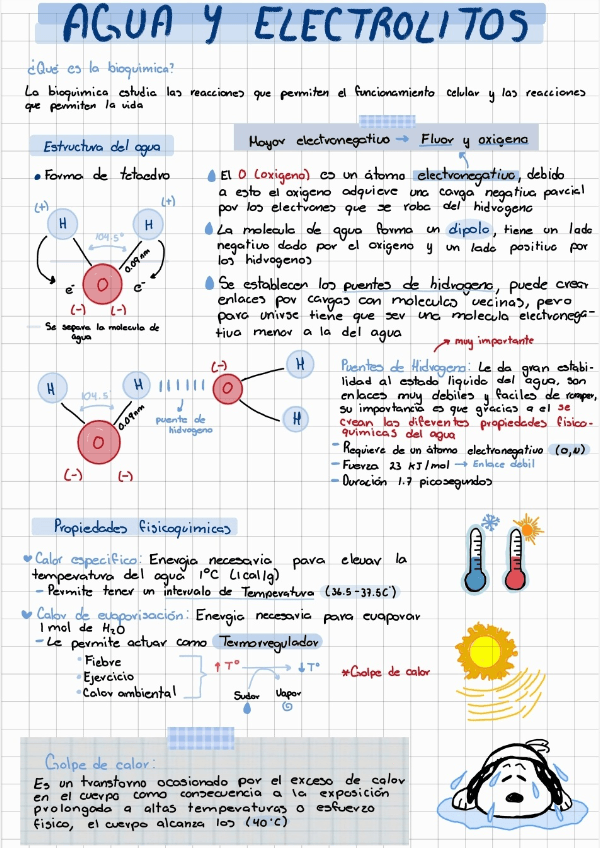 AGUA Y ELECTROLITOS
¿Qué es la bioquimica?
La bioquimica estudia las reacciones que permiten el funcionamiento celular y las reacciones
que permiten la vida
Mayor electronegativo → Fluor y oxigeno
Estructura del agua
• Forma de tetaedro
(+)
(+)
H
H
104.5°
0.09nm
e-
O
e-
(-) (-)
Se separa la molecula de
agua
El O (oxigeno) es un átomo electronegativo, debido
a esto el oxigeno adquiere una carga negativa parcial
por los electrones que se roba del hidrogeno
La molecula de agua forma un dipolo, tiene un lado
negativo dado por el oxigeno y un lado positivo por
los hidrogenos
Se establecen los puentes de hidrogeno, puede crear
enlaces por cargas con moleculas vecinas, pero
para unirse tiene que ser una molecula electronega-
tiva menor a la del agua
muy importante
H
H
104.5
0.09nm
O
(-) (-)
puente de
hidrogeno
(-)
O
H
H
Puentes de Hidrogeno: Le da gran estabi-
lidad al estado liquido del agua, son
enlaces muy debiles y faciles de romper,
su importancia es que gracias a el se
crean las diferentes propiedades fisico-
quimicas del agua
- Requiere de un átomo electronegativo (O,N)
- Fuerza 23 KJ/mol → Enlace debil
- Duración 1.7 picosegundos
Propiedades fisicoquimicas
Calor especifico: Energia necesaria para elevar la
temperatura del agua 1°C (1cal/g)
- Permite tener un intervalo de Temperatura (36.5-37.5C°)
Calor de evaporisación: Energia necesaria para evaporar
1 mol de H2O
- Le permite actuar como Termorregulador
• Fiebre
• Ejercicio
• Calor ambiental
↑T° → ↓T°
Sudor
Vapor
*Golpe de calor
Golpe de calor:
Es un transtorno ocasionado por el exceso de calor
en el cuerpo como consecuencia a la exposición
prolongada a altas temperaturas o esfuerzo
fisico, el cuerpo alcanza los (40°C)